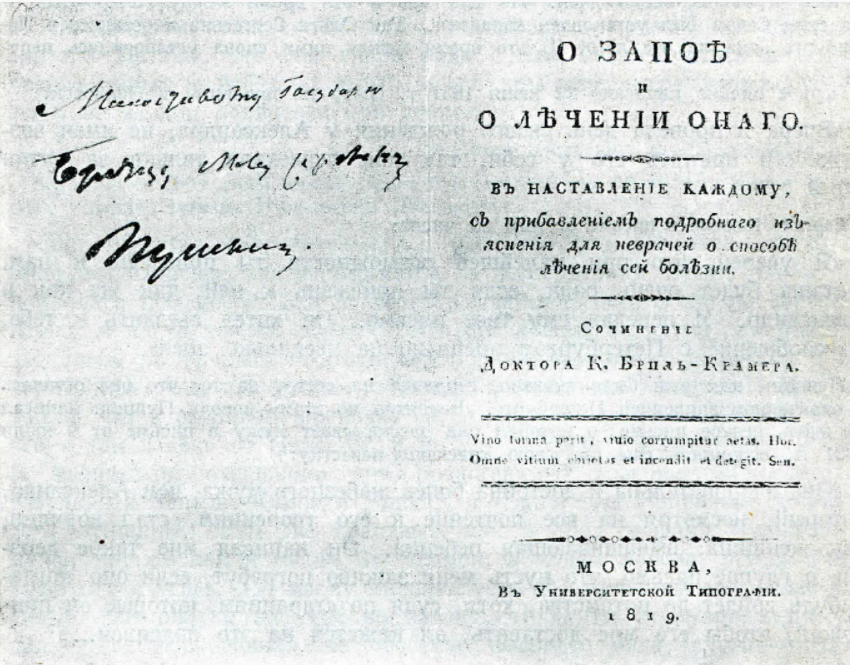 Милостивому Государю
Братцу Льву Сергеевичу
Пушкин.
О ЗАПОѢ
И
О ЛѢЧЕНІИ ОНАГО.
ВЪ НАСТАВЛЕНІЕ КАЖДОМУ,
съ прибавленіемъ подробнаго изъ-
ясненія для неврачей о способѣ
лѣченія сей болѣзни.
Сочиненіе
Доктора К. Бриль-Крамера.
Vino forma perit, vino corrumpitur aetas. Hor.
Omne vitium ebrietas et incendit et detegit. Sen.
МОСКВА,
Въ Университетской Типографіи.
1819.